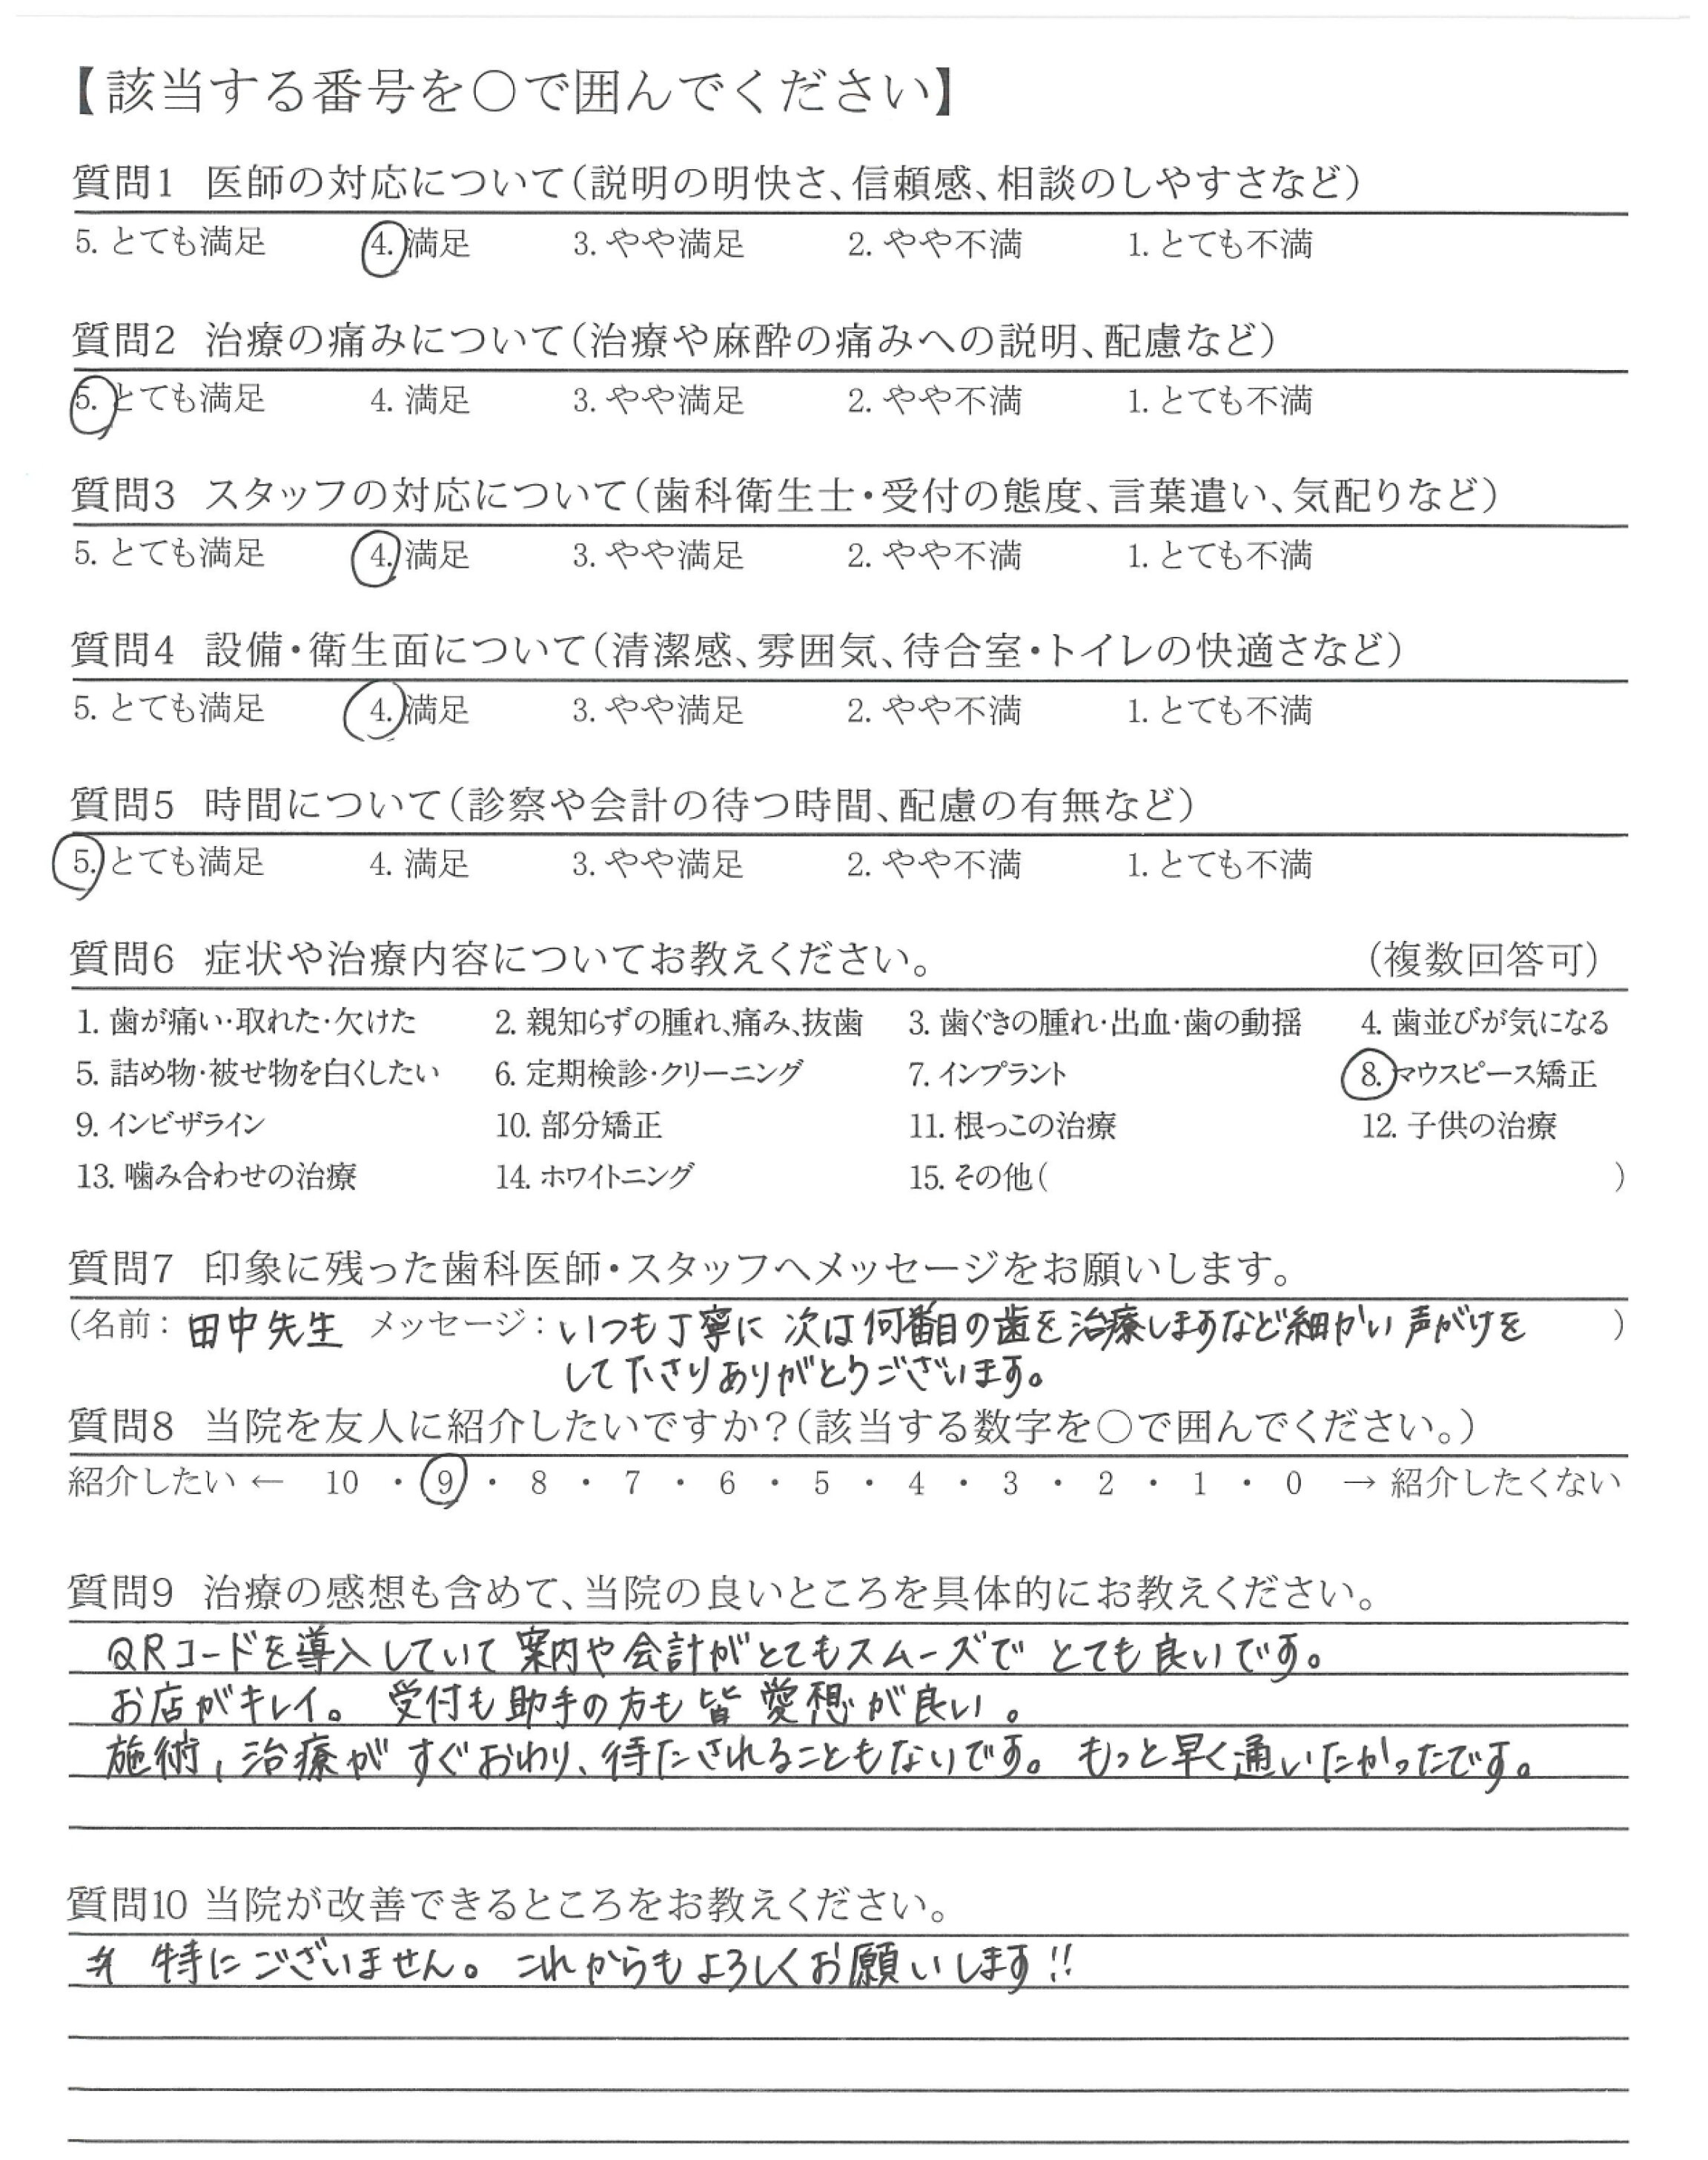 【該当する番号を○で囲んでください】
質問1 医師の対応について(説明の明快さ、信頼感、相談のしやすさなど)
5. とても満足 4. 満足 3. やや満足 2. やや不満 1. とても不満
質問2 治療の痛みについて(治療や麻酔の痛みへの説明、配慮など)
5. とても満足 4. 満足 3. やや満足 2. やや不満 1. とても不満
質問3 スタッフの対応について(歯科衛生士・受付の態度、言葉遣い、気配りなど)
5. とても満足 4. 満足 3. やや満足 2. やや不満 1. とても不満
質問4 設備・衛生面について(清潔感、雰囲気、待合室・トイレの快適さなど)
5. とても満足 4. 満足 3. やや満足 2. やや不満 1. とても不満
質問5 時間について(診察や会計の待つ時間、配慮の有無など)
5. とても満足 4. 満足 3. やや満足 2. やや不満 1. とても不満
質問6 症状や治療内容についてお教えください。 (複数回答可)
1. 歯が痛い・取れた・欠けた 2. 親知らずの腫れ、痛み、抜歯 3. 歯ぐきの腫れ・出血・歯の動揺 4. 歯並びが気になる
5. 詰め物・被せ物を白くしたい 6. 定期検診・クリーニング 7. インプラント 8. マウスピース矯正
9. インビザライン 10. 部分矯正 11. 根っこの治療 12. 子供の治療
13. 噛み合わせの治療 14. ホワイトニング 15. その他( )
質問7 印象に残った歯科医師・スタッフへメッセージをお願いします。
(名前: 田中先生 メッセージ: いつも丁寧に 次は何番目の歯を治療しますなど細かい声がけを )
して下さりありがとうございます。
質問8 当院を友人に紹介したいですか?(該当する数字を○で囲んでください。)
紹介したい ← 10 ・ 9 ・ 8 ・ 7 ・ 6 ・ 5 ・ 4 ・ 3 ・ 2 ・ 1 ・ 0 → 紹介したくない
質問9 治療の感想も含めて、当院の良いところを具体的にお教えください。
QRコードを導入していて 案内や会計がとてもスムーズで とても良いです。
お店がキレイ。 受付も助手の方も皆愛想が良い。
施術、治療が すぐおわり、待たされることもないです。 もっと早く通いたかったです。
質問10 当院が改善できるところをお教えください。
特にございません。 これからもよろしくお願いします!!